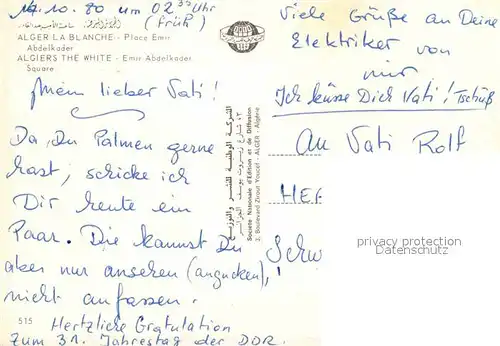 14.10.80 um 02³⁵ Uhr
(Früh)
ALGER LA BLANCHE - Place Emir
Abdelkader
ALGIERS THE WHITE - Emir Abdelkader
Square
Mein lieber Vati!
Da Du Palmen gerne
hast, schicke ich
Dir heute ein
Paar. Die kannst Du
aber nur ansehen (angucken),
nicht anfassen.
515
Hertzliche Gratulation
zum 31. Jahrestag der DDR.
الشركة الوطنية للنشر والتوزيع
Société Nationale d'Edition et de Diffusion
3, Boulevard Zirout Youcef - ALGER - Algérie
Viele Grüße an Deine
Elektriker von
mir
Ich küsse Dich Vati! Tschüß
An Vati Rolf
HER
Schw
privacy protection
Datenschutz